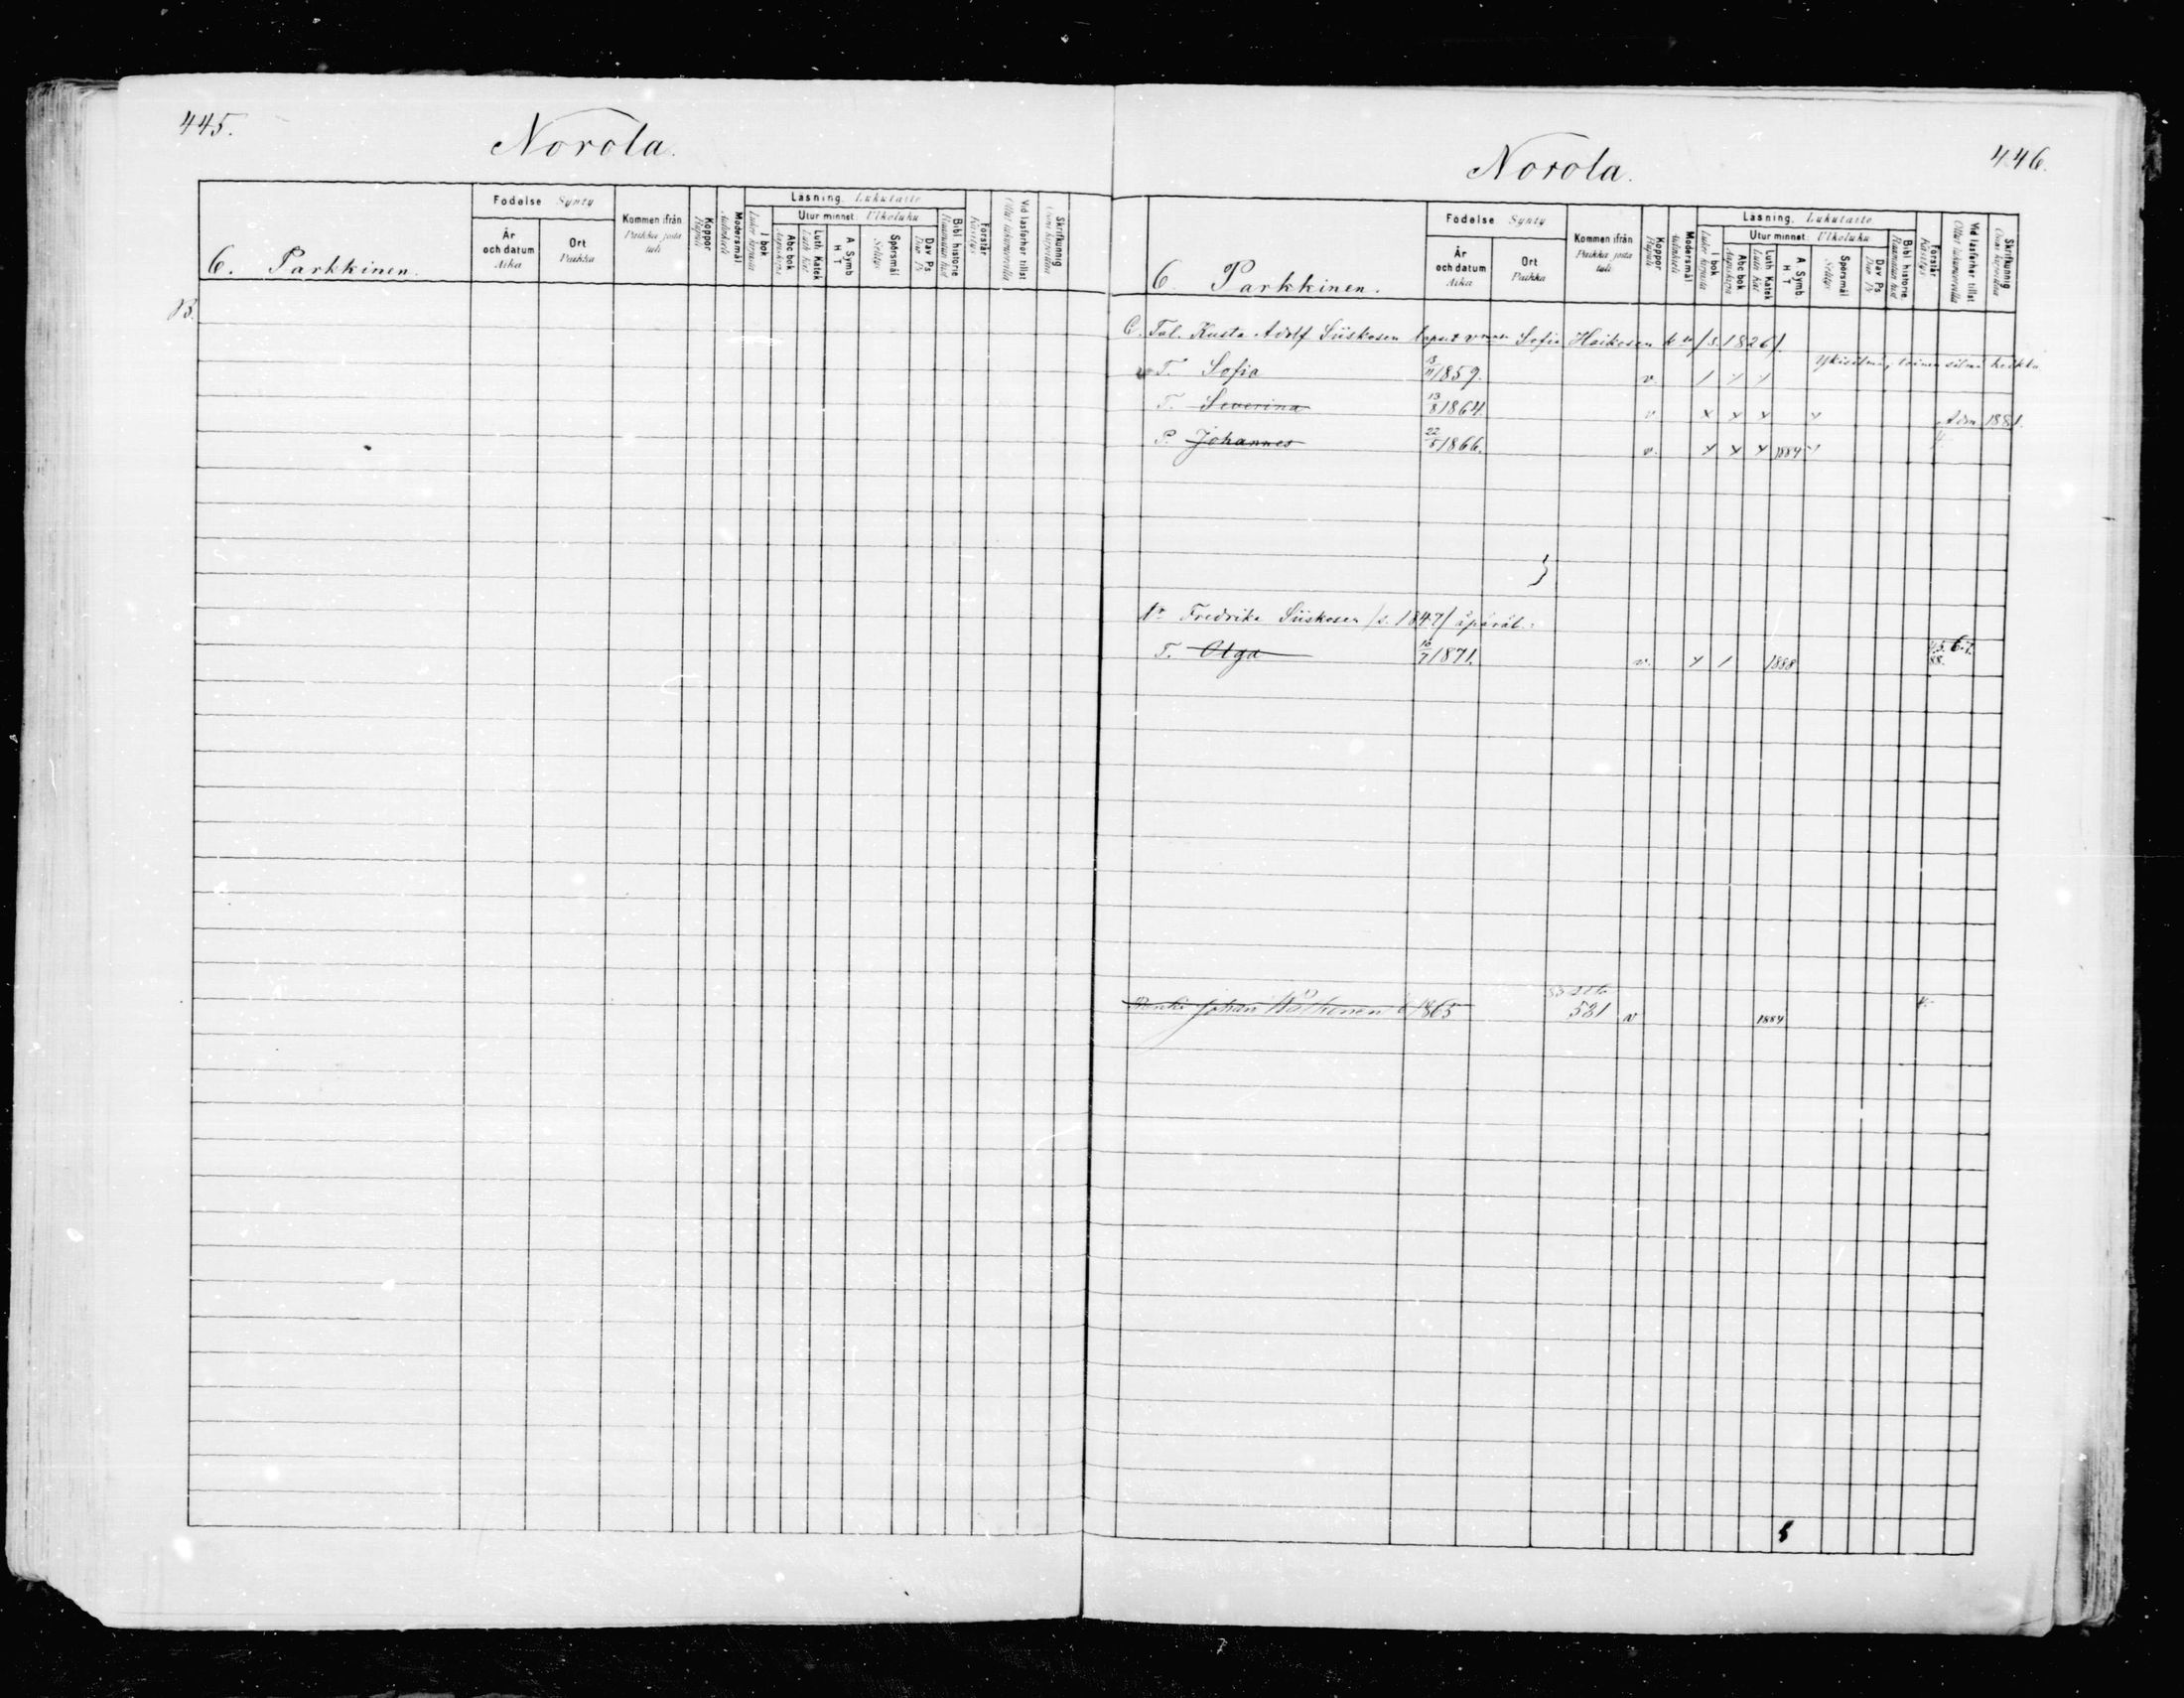 445.
Norola.
Födelse Synty
År och datum Aika
Ort Paikka
Kommen ifrån Paikka josta tuli
Koppor Rupuli
Modersmål Äidinkieli
Läsning. Lukutaito
I bok Lukee kirjasta
Utur minnet: Ulkoluku
Abc bok Aapiskirja
Luth Katek Luth Kat
A Symb H T
Spörsmål Selitys
Dav Ps Dav Ps
Bibl historie Raamatun hist
Förstår Käsitys
Vid läsförhör tillst Ollut lukuvuorolla
Skrifkunnig Osaa kirjoittaa
6. Parkkinen.
B.
Norola.
446.
Födelse Synty
År och datum Aika
Ort Paikka
Kommen ifrån Paikka josta tuli
Koppor Rupuli
Modersmål Äidinkieli
Läsning. Lukutaito
I bok Lukee kirjasta
Utur minnet: Ulkoluku
Abc bok Aapiskirja
Luth Katek Luth Kat
A Symb H T
Spörsmål Selitys
Dav Ps Dav Ps
Bibl historie Raamatun hist
Förstår Käsitys
Vid läsförhör tillst Ollut lukuvuorolla
Skrifkunnig Osaa kirjoittaa
6. Parkkinen.
C. Tal. Kusta Adolf Siiskosen lapset Sofia Heikosen /s. 1826/.
T. Sofia 1859. v.
T. Severina 13/8 1864. v 1881.
P. Johannes 22/8 1866. v. 1884
Fredrika Siiskosen /s. 1847/ äpäräl.:
T. Olga 10/7 1871. v. 1888 88.
Johan 1865 581 v 1884